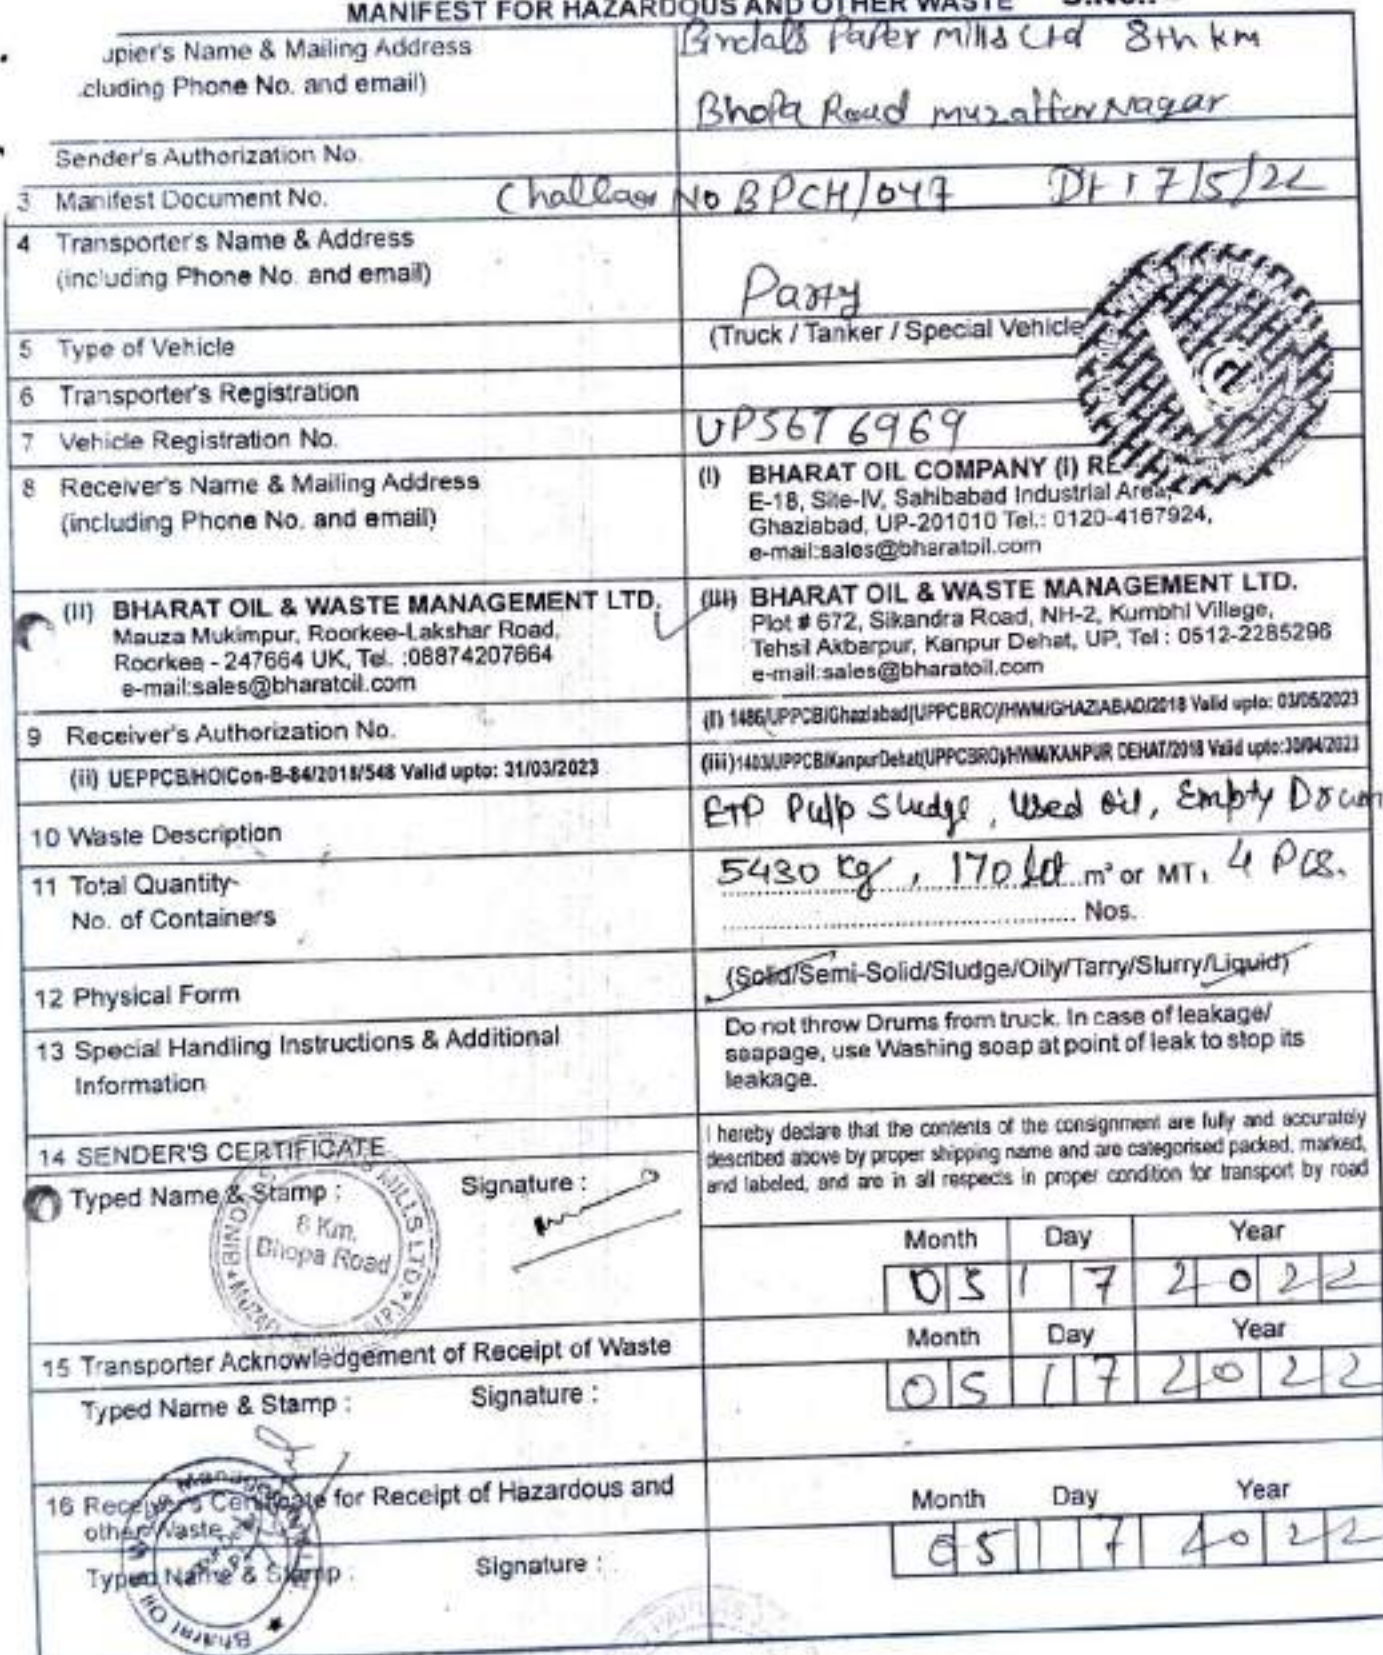 MANIFEST FOR HAZARDOUS AND OTHER WASTE
upier's Name & Mailing Address
cluding Phone No. and email)
Bindals Paper Mills Ltd 8th km
Bhopa Road muzaffarNagar
Sender's Authorization No.
3 Manifest Document No.
Challan No BPCH/047 Dt 17/5/22
4 Transporter's Name & Address
(including Phone No. and email)
Party
5 Type of Vehicle
(Truck / Tanker / Special Vehicle
6 Transporter's Registration
7 Vehicle Registration No.
UP56T 6969
8 Receiver's Name & Mailing Address
(including Phone No. and email)
(I) BHARAT OIL COMPANY (I) RE
E-18, Site-IV, Sahibabad Industrial Area,
Ghaziabad, UP-201010 Tel.: 0120-4167924,
e-mail:sales@bharatoil.com
(II) BHARAT OIL & WASTE MANAGEMENT LTD.
Mauza Mukimpur, Roorkee-Lakshar Road,
Roorkee - 247664 UK, Tel. :08874207664
e-mail:sales@bharatoil.com
(III) BHARAT OIL & WASTE MANAGEMENT LTD.
Plot # 672, Sikandra Road, NH-2, Kumbhi Village,
Tehsil Akbarpur, Kanpur Dehat, UP, Tel : 0512-2285296
e-mail:sales@bharatoil.com
9 Receiver's Authorization No.
(i) 1486/UPPCB/Ghaziabad(UPPCBRO)/HWM/GHAZIABAD/2018 Valid upto: 03/05/2023
(ii) UEPPCB/HO/Con-B-84/2018/548 Valid upto: 31/03/2023
(iii)1403/UPPCB/KanpurDehat(UPPCBRO)/HWM/KANPUR DEHAT/2018 Valid upto:30/04/2023
10 Waste Description
ETP Pulp Sludge, Used oil, Empty Drum
11 Total Quantity
No. of Containers
5430 kg, 170 lit m³ or MT, 4 Pcs.
Nos.
12 Physical Form
(Solid/Semi-Solid/Sludge/Oily/Tarry/Slurry/Liquid)
13 Special Handling Instructions & Additional
Information
Do not throw Drums from truck. In case of leakage/
seapage, use Washing soap at point of leak to stop its
leakage.
14 SENDER'S CERTIFICATE
I hereby declare that the contents of the consignment are fully and accurately
described above by proper shipping name and are categorised packed, marked,
and labeled, and are in all respects in proper condition for transport by road
Typed Name & Stamp : Signature :
MILLS LTD
8 Km.
Bhopa Road
Month Day Year
05 17 2022
15 Transporter Acknowledgement of Receipt of Waste
Month Day Year
05 17 2022
Typed Name & Stamp : Signature :
16 Receiver's Certificate for Receipt of Hazardous and
other Waste
Month Day Year
05 17 2022
Typed Name & Stamp : Signature :
Bharat Oil